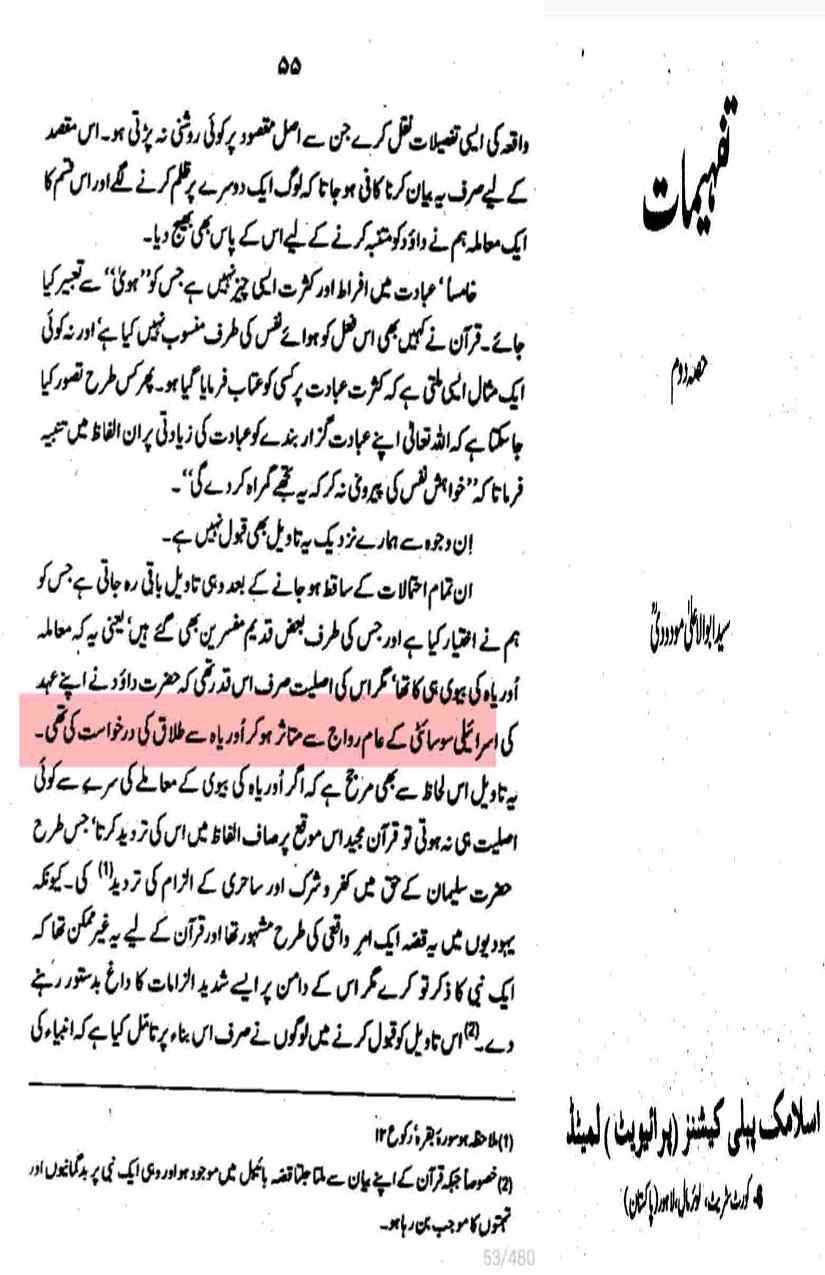 ۵۵
واقعہ کی ایسی تفصیلات نقل کرے جن سے اصل مقصود پر کوئی روشنی نہ پڑتی ہو۔ اس مقصد
کے لیے صرف یہ بیان کرنا کافی ہو جاتا کہ لوگ ایک دوسرے پر ظلم کرنے لگے اور اس قسم کا
ایک معاملہ ہم نے داؤد کو متنبہ کرنے کے لیے اس کے پاس بھی بھیج دیا۔
خامساً، عبادت میں افراط اور کثرت ایسی چیز نہیں ہے جس کو ”ہویٰ“ سے تعبیر کیا
جائے۔ قرآن نے کہیں بھی اس فعل کو ہوائے نفس کی طرف منسوب نہیں کیا ہے، اور نہ کوئی
ایک مثال ایسی ملتی ہے کہ کثرت عبادت پر کسی کو عتاب فرمایا گیا ہو۔ پھر کس طرح تصور کیا
جا سکتا ہے کہ اللہ تعالیٰ اپنے عبادت گزار بندے کو عبادت کی زیادتی پر ان الفاظ میں تنبیہ
فرماتا کہ ”خواہش نفس کی پیروی نہ کر کہ یہ تجھے گمراہ کر دے گی“۔
اِن وجوہ سے ہمارے نزدیک یہ تاویل بھی قبول نہیں ہے۔
ان تمام احتمالات کے ساقط ہو جانے کے بعد وہی تاویل باقی رہ جاتی ہے جس کو
ہم نے اختیار کیا ہے اور جس کی طرف بعض قدیم مفسرین بھی گئے ہیں، یعنی یہ کہ معاملہ
اُوریاہ کی بیوی ہی کا تھا، مگر اس کی اصلیت صرف اس قدر تھی کہ حضرت داؤد نے اپنے عہد
کی اسرائیلی سوسائٹی کے عام رواج سے متاثر ہو کر اُوریاہ سے طلاق کی درخواست کی تھی۔
یہ تاویل اس لحاظ سے بھی مرجح ہے کہ اگر اُوریاہ کی بیوی کے معاملے کی سرے سے کوئی
اصلیت ہی نہ ہوتی تو قرآن مجید اس موقع پر صاف الفاظ میں اس کی تردید کرتا، جس طرح
حضرت سلیمان کے حق میں کفر و شرک اور ساحری کے الزام کی تردید (1) کی۔ کیونکہ
یہودیوں میں یہ قصہ ایک امرِ واقعی کی طرح مشہور تھا اور قرآن کے لیے یہ غیر ممکن تھا کہ
ایک نبی کا ذکر تو کرے مگر اس کے دامن پر ایسے شدید الزامات کا داغ بدستور رہنے
دے۔ (2) اس تاویل کو قبول کرنے میں لوگوں نے صرف اس بناء پر تامل کیا ہے کہ انبیاء کی
(1) ملاحظہ ہو سورۂ بقرہ، رکوع ۱۲
(2) خصوصاً جبکہ قرآن کے اپنے بیان سے ملتا جلتا قصہ بائیبل میں موجود ہو اور وہی ایک نبی پر بدگمانیوں اور
تہمتوں کا موجب بن رہا ہو۔
53/480
تفہیمات
حصہ دوم
سید ابوالاعلیٰ مودودیؒ
اسلامک پبلی کیشنز (پرائیویٹ) لمیٹڈ
کورٹ سٹریٹ، لوئر مال، لاہور (پاکستان)